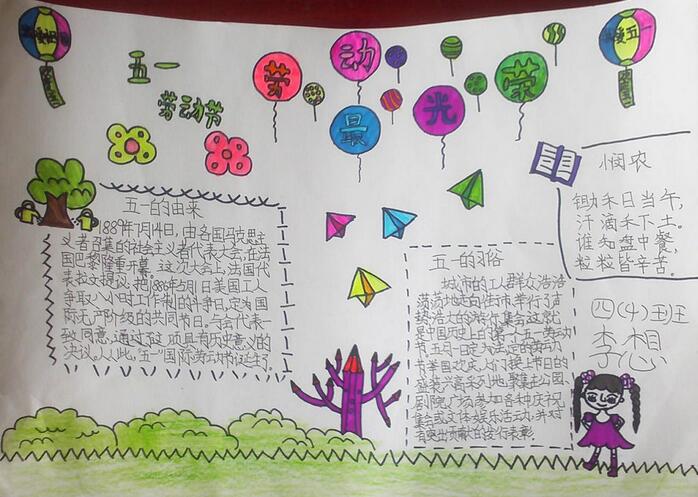 五一
劳动节
劳动最光荣
五一的由来
1889年7月14日,由各国马克思主
义者召集的社会主义者代表大会,在法
国巴黎隆重开幕。这次大会上,法国代
表拉文提议:把1886年5月1日美国工人
争取八小时工作制的斗争日,定为国
际无产阶级的共同节日。与会代表一
致同意,通过了这项具有历史意义的
决议。从此,五一国际劳动节诞生了。
五一的习俗
城市的工人群众浩浩
荡荡地走向街市举行了声
势浩大的游行集会这就
是中国历史上的第一个五一劳动
节五月一日定为法定的劳动
节举国欢庆人们换上节日的
盛装兴高采烈地聚集在公园
剧院广场参加各种庆祝
集会或文体娱乐活动并对
有突出贡献的
表彰
悯农
锄禾日当午,
汗滴禾下土。
谁知盘中餐,
粒粒皆辛苦。
四(4)班
李想